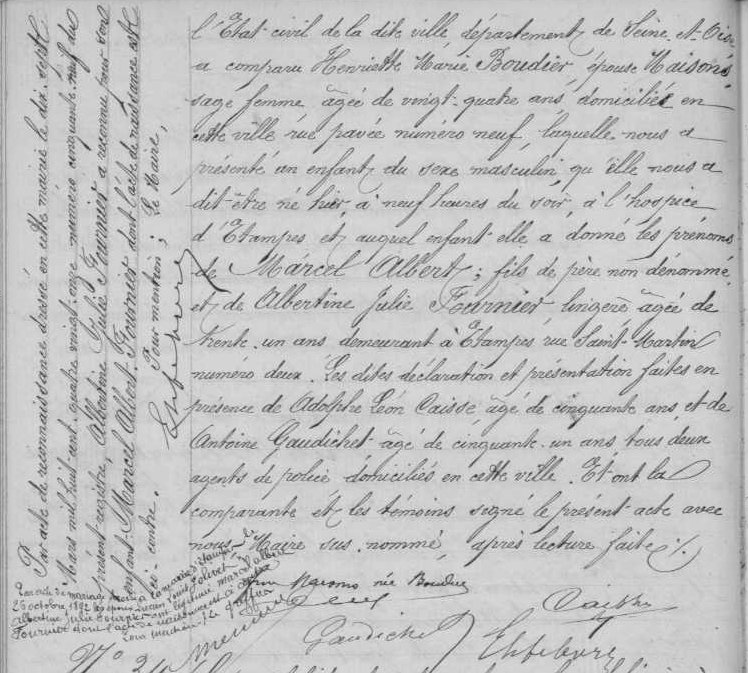 l'Etat civil de la dite ville département de Seine-et-Oise
a comparu Henriette Marie Boudier, épouse Maisons,
sage femme âgée de vingt-quatre ans, domiciliée en
cette ville rue pavée numéro neuf, laquelle nous a
présenté un enfant du sexe masculin qu'elle nous a
dit être né hier, à neuf heures du soir, à l'hospice
d'Etampes et auquel enfant elle a donné les prénoms
de Marcel Albert; fils de père non dénommé
et de Albertine Julie Fournier, lingère âgée de
trente-un ans, demeurant à Etampes rue Saint-Martin
numéro deux. Les dites déclaration et présentation faites en
présence de Adolphe Léon Caisse âgé de cinquante ans et de
Antoine Gaudichet âgé de cinquante-un ans tous deux
agents de police domiciliés en cette ville. Et ont la
comparante et les témoins signé le présent acte avec
nous Maire sus-nommé, après lecture faite ./.
née Boudier
Caisse
Gaudichet
Lefebvre
Par acte de reconnaissance dressé en cette mairie le dix-sept
Mars mil huit cent quatre vingt-onze numéro cinquante-neuf du
présent registre, Albertine Julie Fournier a reconnu pour son
enfant Marcel Albert Fournier dont l'acte de naissance est
ci-contre.
Pour mention; Le Maire,
Lefebvre
Par acte de mariage
26 octobre 1892
Albertine Julie Fournier ont légitimé Marcel Albert
Fournier dont l'acte de naissance est ci-contre
Pour mention Le greffier
N° 24